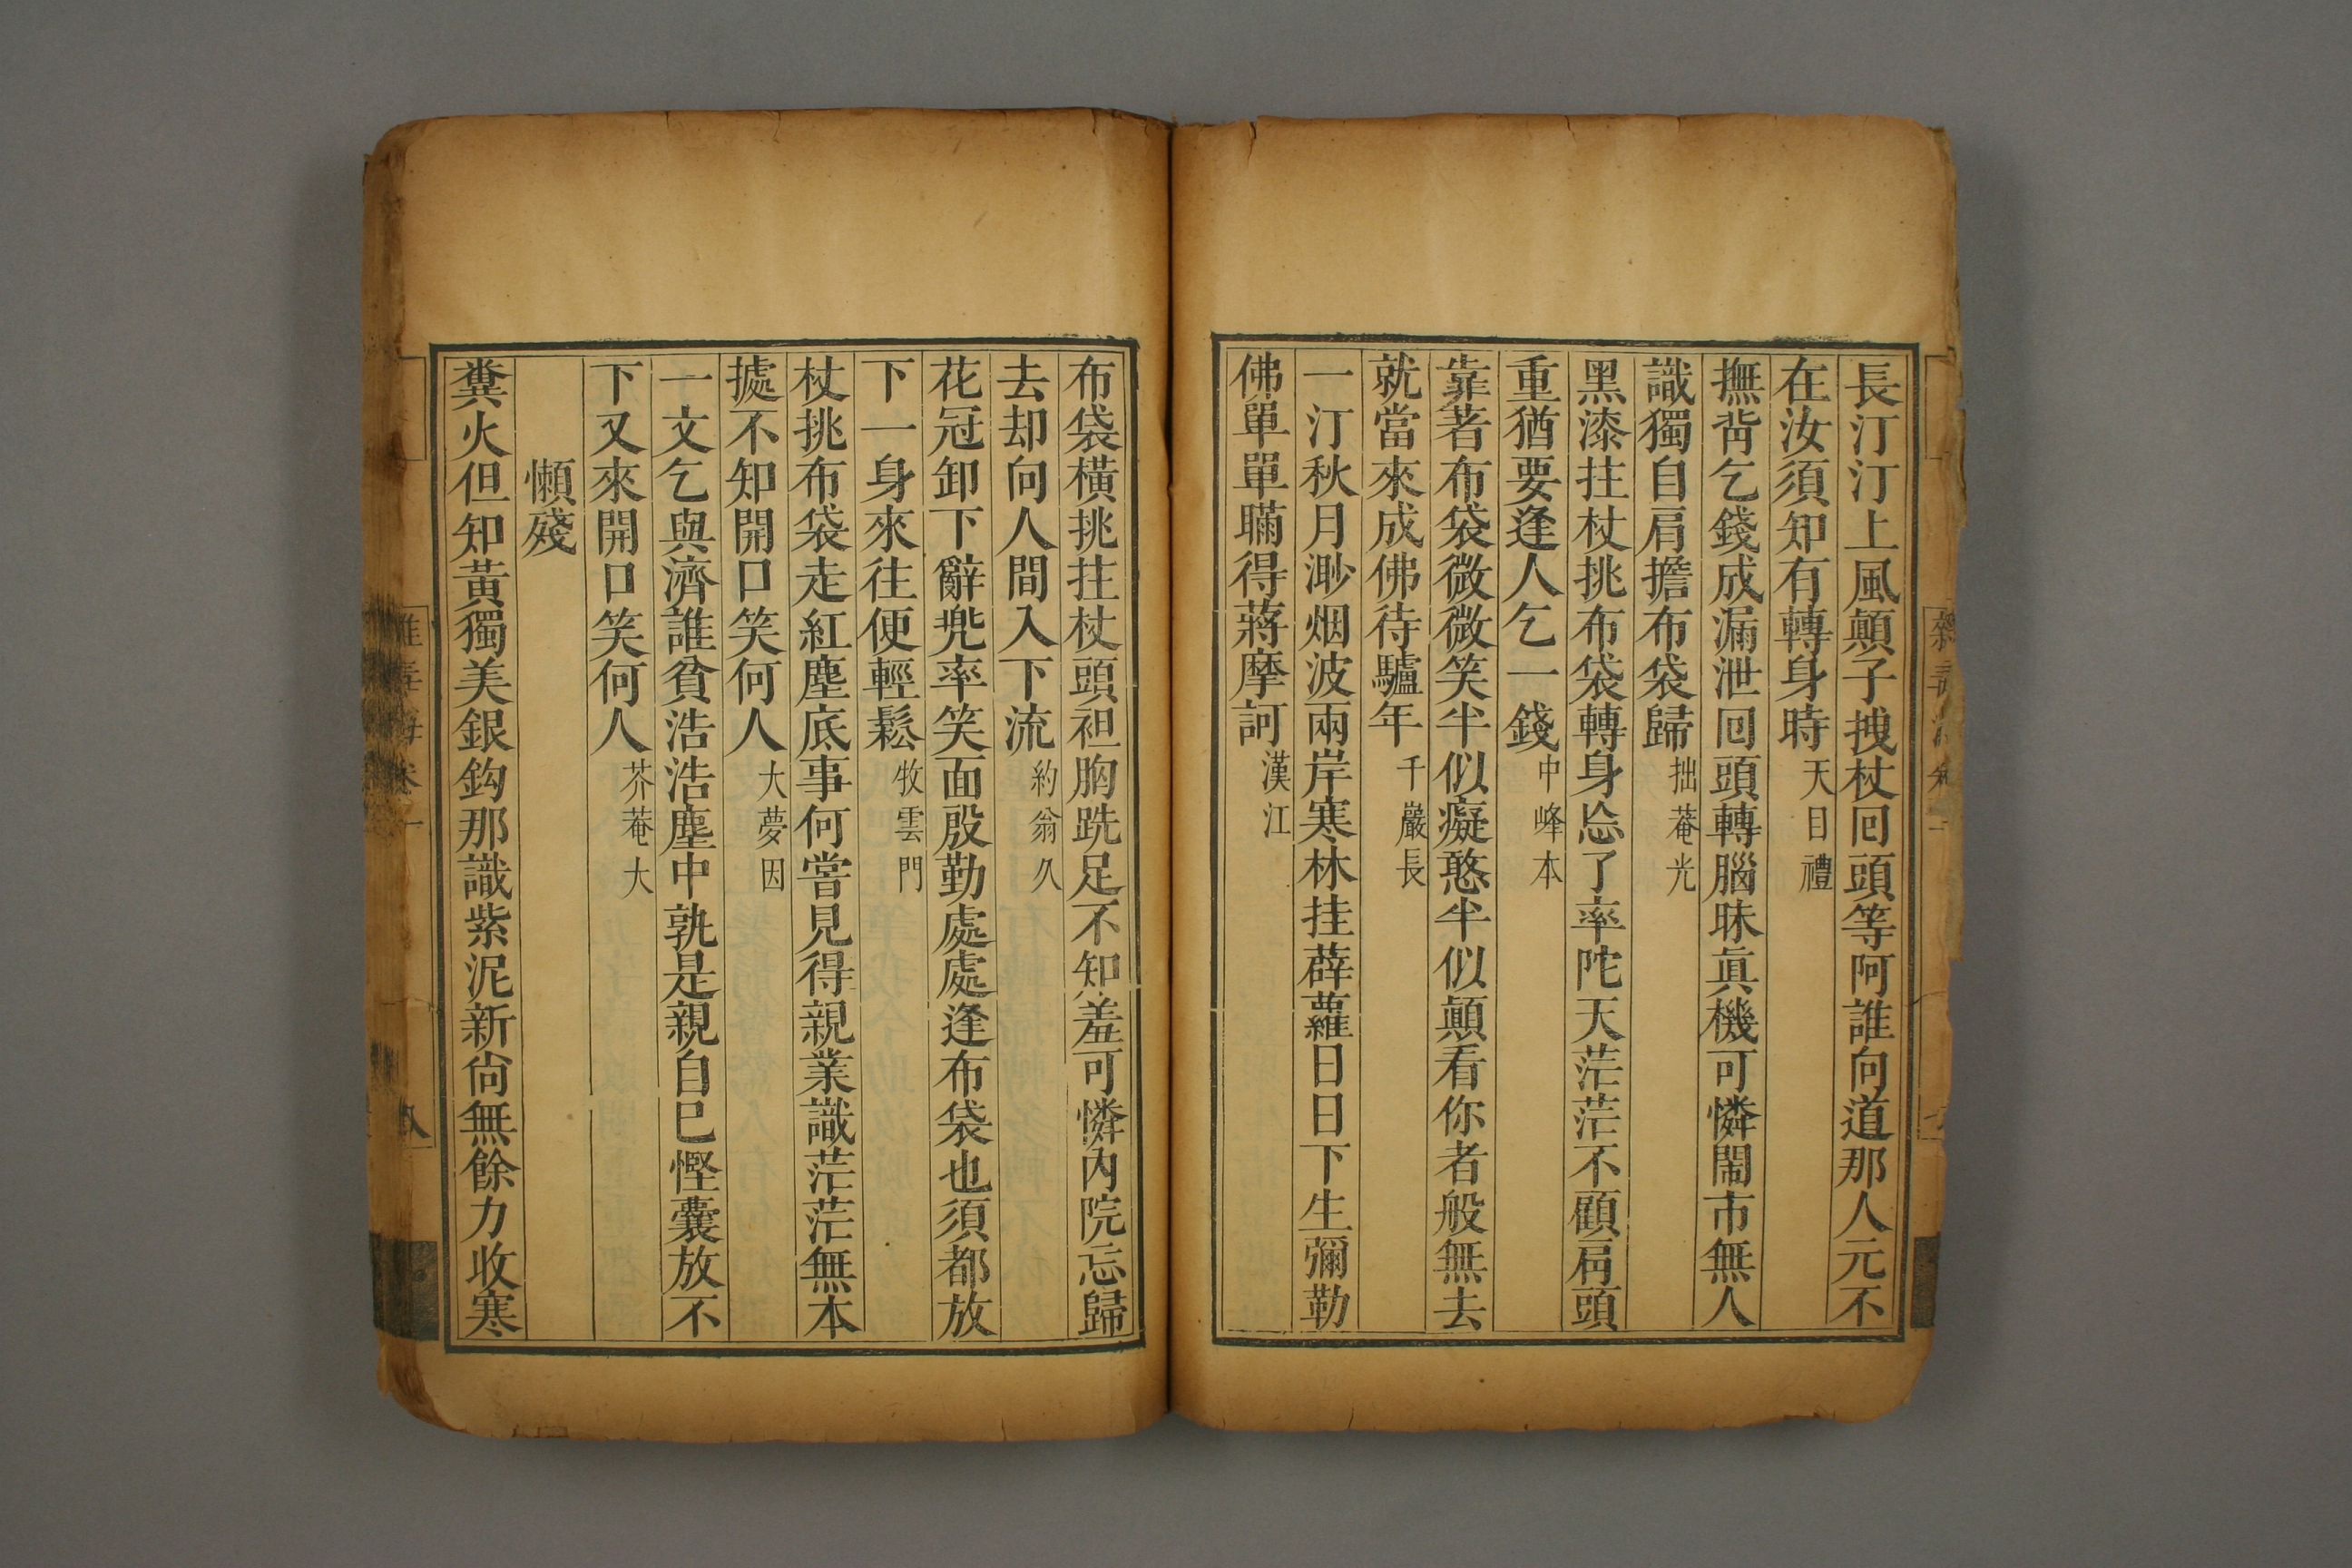 長汀汀上風顛子拽杖回頭等阿誰向道那人元不
在汝須知有轉身時天目禮
撫背乞錢成漏泄回頭轉腦昧眞機可憐鬧市無人
識獨自肩擔布袋歸拙菴光
黑漆拄杖挑布袋轉身忩了率陀天茫茫不顧肩頭
重猶要逢人乞一錢中峰本
靠著布袋微微笑半似癡憨半似顛看你者般無去
就當來成佛待驢年千巖長
一汀秋月渺烟波兩岸寒林挂薜蘿日日下生彌勒
佛單單瞞得蔣摩訶漢江
布袋橫挑拄杖頭袒胸跣足不知羞可憐內院忘歸
去却向人間入下流約翁久
花冠卸下辭兠率笑面殷勤處處逢布袋也須都放
下一身來往便輕鬆牧雲門
杖挑布袋走紅塵底事何嘗見得親業識茫茫無本
據不知開口笑何人大夢因
一文乞與濟誰貧浩浩塵中孰是親自巳慳囊放不
下又來開口笑何人芥菴大
懶殘
糞火但知黃獨美銀鈎那識紫泥新尙無餘力收寒